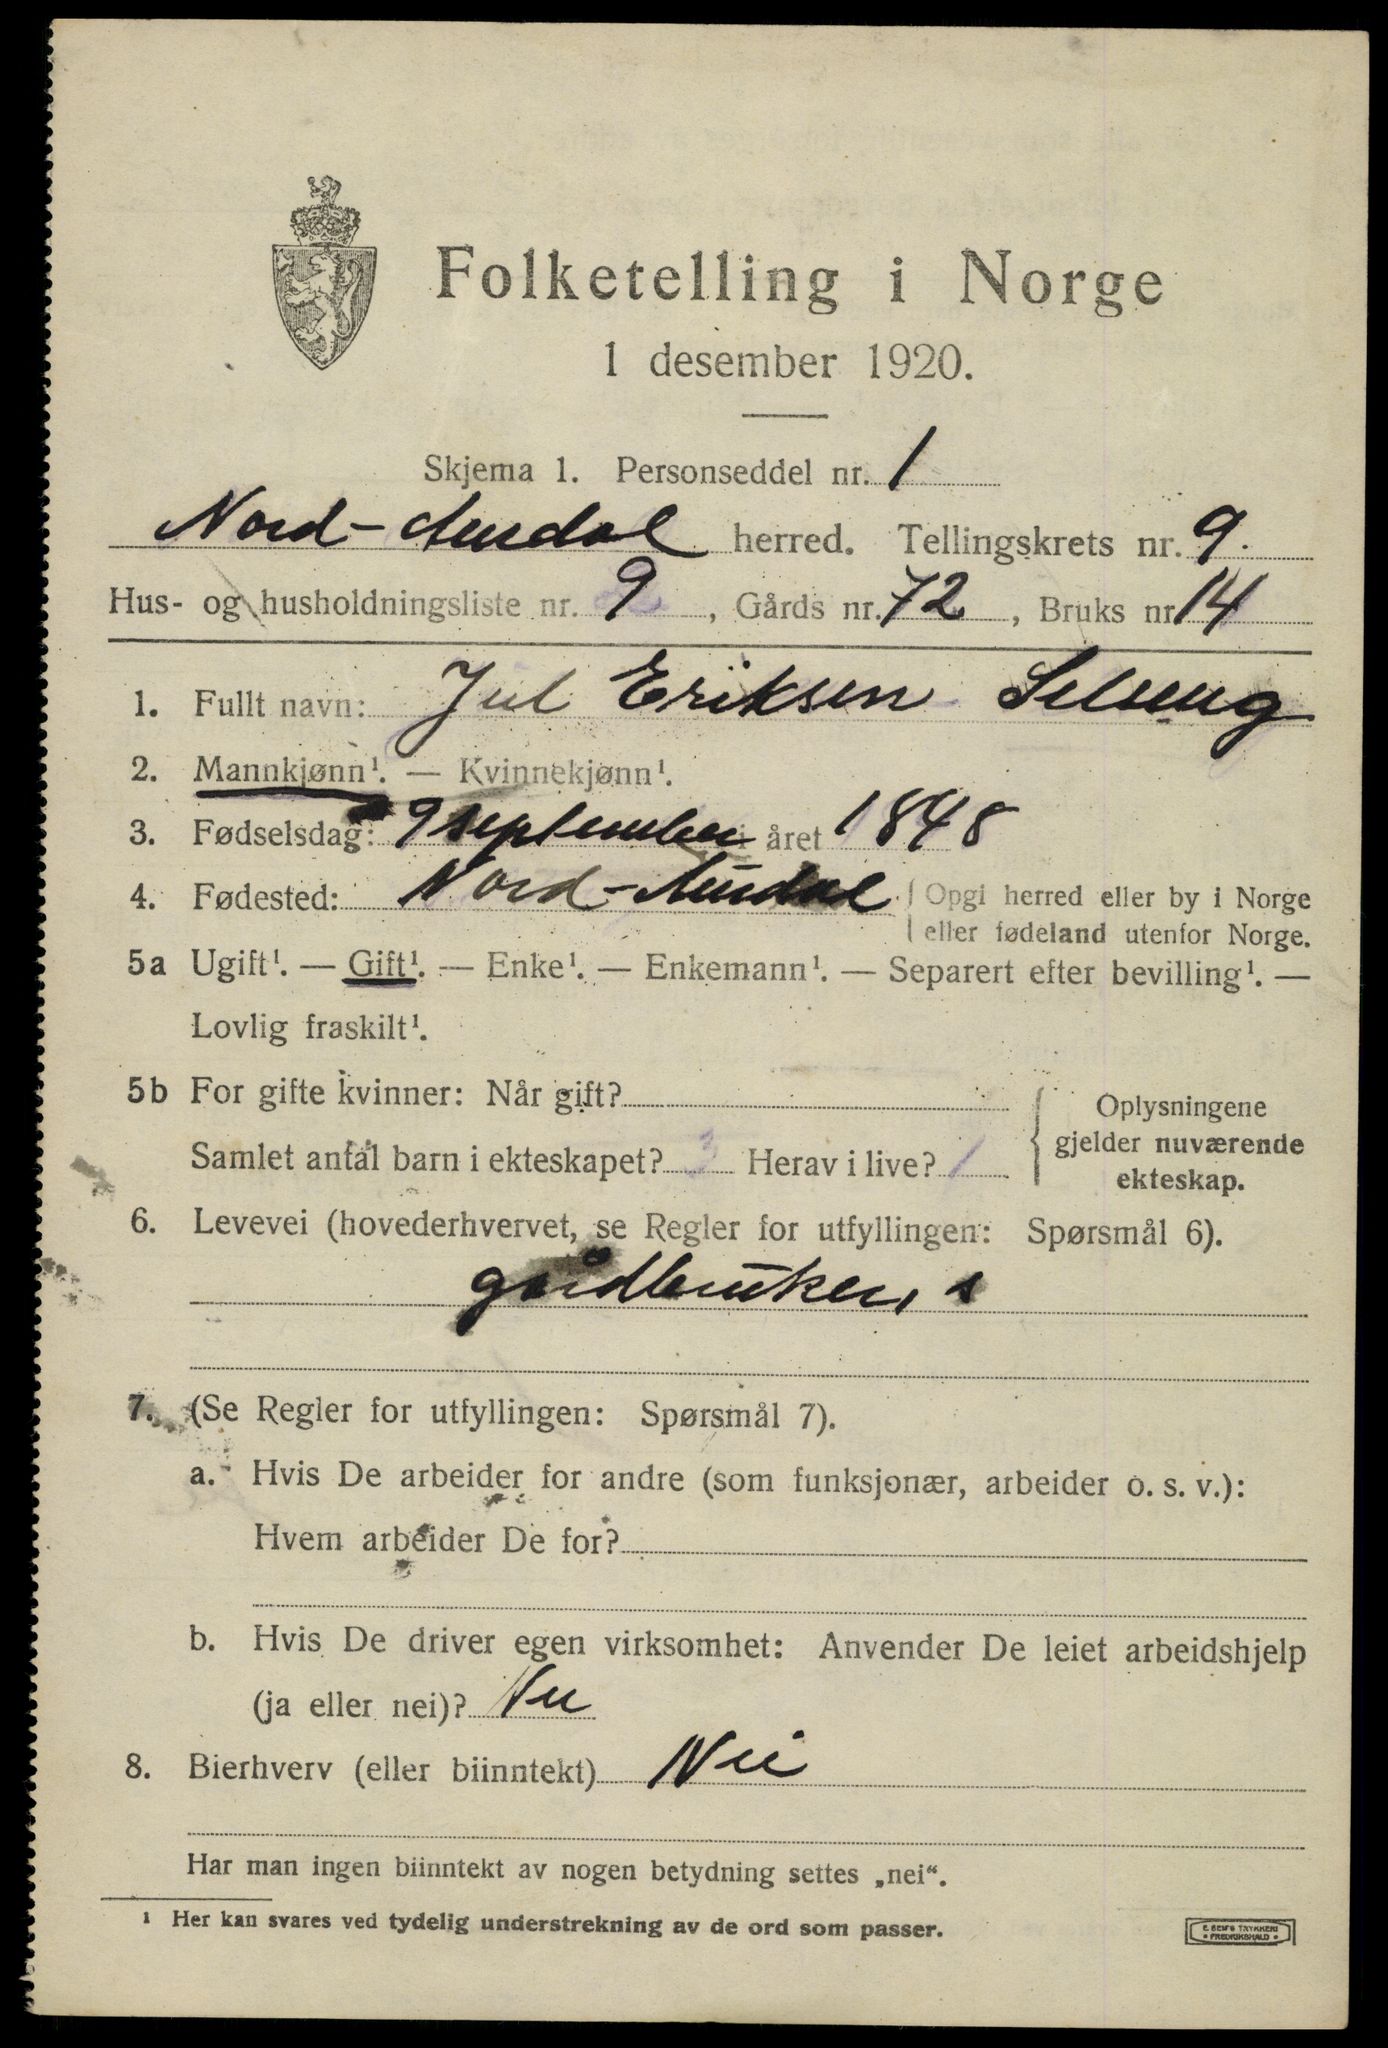 Folketelling i Norge
1 desember 1920.
Skjema 1. Personseddel nr. 1
Nord-Aurdal herred. Tellingskrets nr. 9.
Hus- og husholdningsliste nr. 9, Gårds nr. 72, Bruks nr. 14
1. Fullt navn: Jul Eriksen Selseng
2. Mannkjønn¹. — Kvinnekjønn¹.
3. Fødselsdag: 9 september i året 1848
4. Fødested: Nord-Aurdal (Opgi herred eller by i Norge
eller fødeland utenfor Norge.
5a Ugift¹. — Gift¹. — Enke¹. — Enkemann¹. — Separert efter bevilling¹. —
Lovlig fraskilt¹.
5b For gifte kvinner: Når gift?
Samlet antal barn i ekteskapet? 3 Herav i live? 1
Oplysningene
gjelder nuværende
ekteskap.
6. Levevei (hovederhvervet, se Regler for utfyllingen: Spørsmål 6).
gårdbruker, s
7. (Se Regler for utfyllingen: Spørsmål 7).
a. Hvis De arbeider for andre (som funksjonær, arbeider o. s. v.):
Hvem arbeider De for?
b. Hvis De driver egen virksomhet: Anvender De leiet arbeidshjelp
(ja eller nei)? Nei
8. Bierhverv (eller biinntekt) Nei
Har man ingen biinntekt av nogen betydning settes „nei“.
¹ Her kan svares ved tydelig understrekning av de ord som passer.
E. SEM'S TRYKKERI
• FREDRIKSHALD •